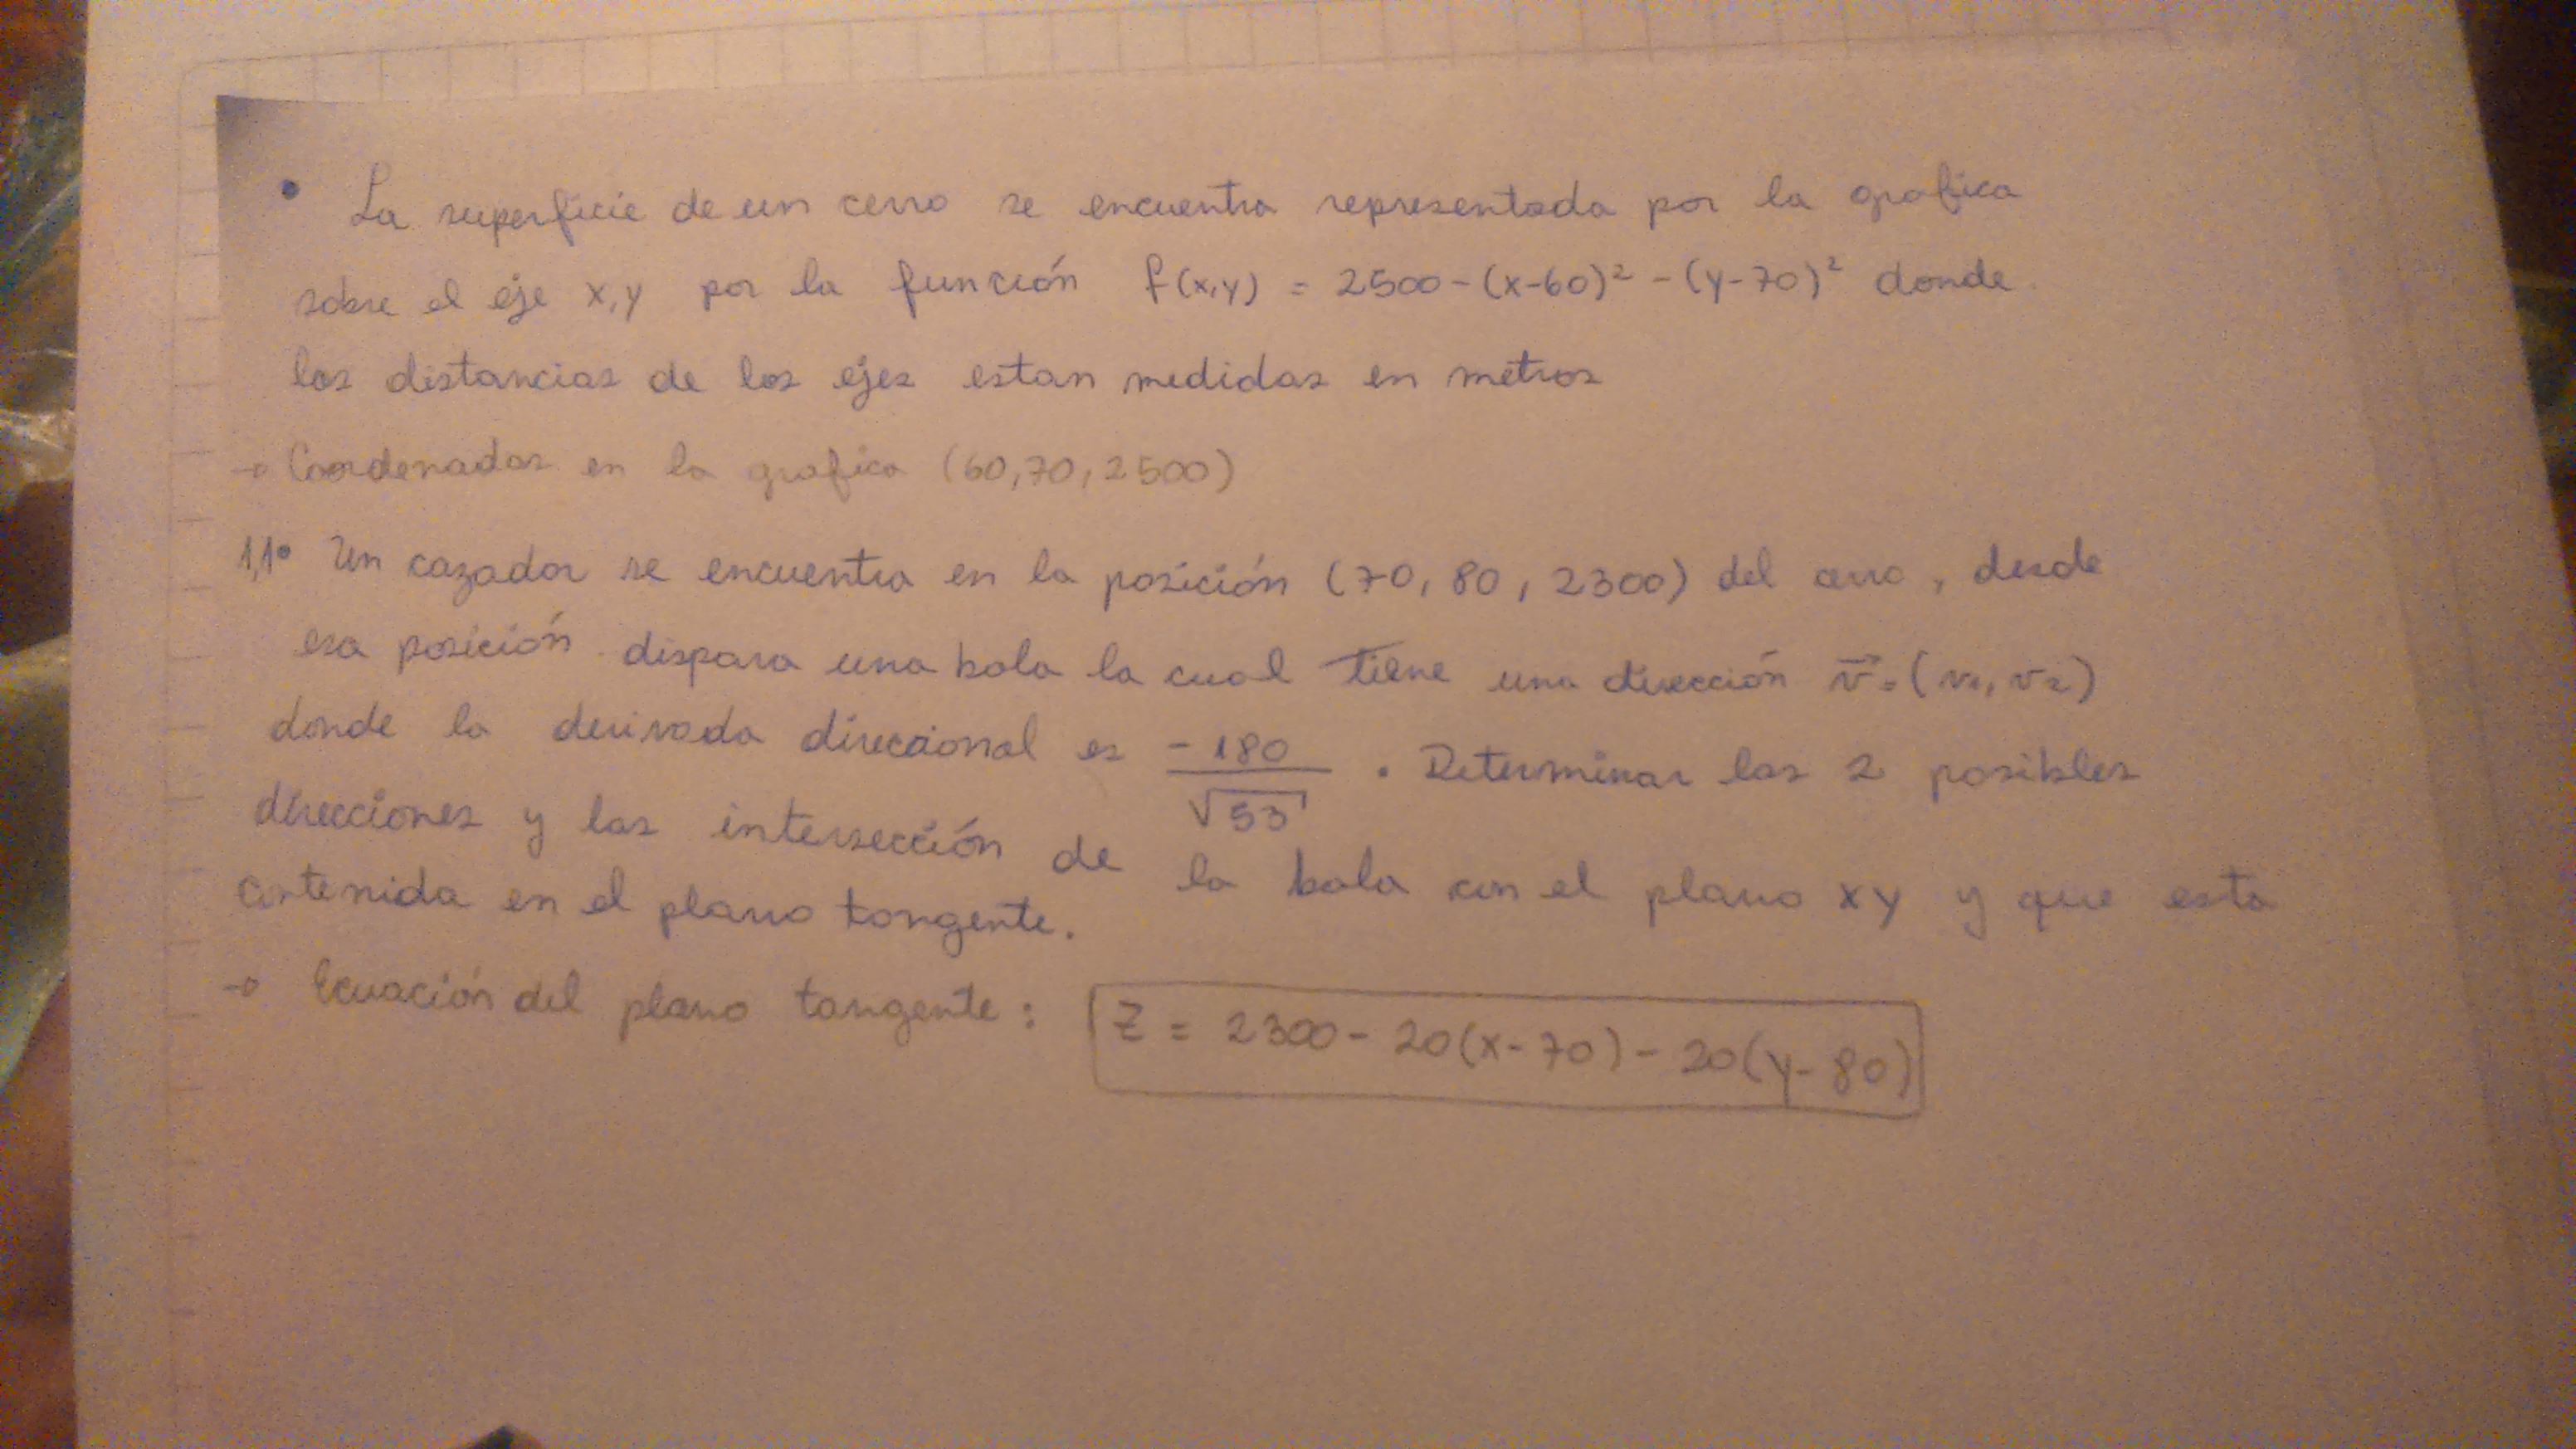 • La superficie de un cerro se encuentra representada por la grafica
sobre el eje x,y por la función f(x,y) = 2500-(x-60)² -(y-70)² donde
las distancias de los ejes estan medidas en metros
→ Coordenadas en la grafica (60,70,2500)
1,1• Un cazador se encuentra en la posición (70, 80, 2300) del cerro, desde
esa posición dispara una bala la cual tiene una dirección v⃗=(v₁, v₂)
donde la derivada direccional es -180/√53 . Determinar las 2 posibles
direcciones y las intersección de la bala con el plano xy y que esta
contenida en el plano tangente.
→ Ecuación del plano tangente: Z = 2300 - 20(x-70) - 20(y-80)